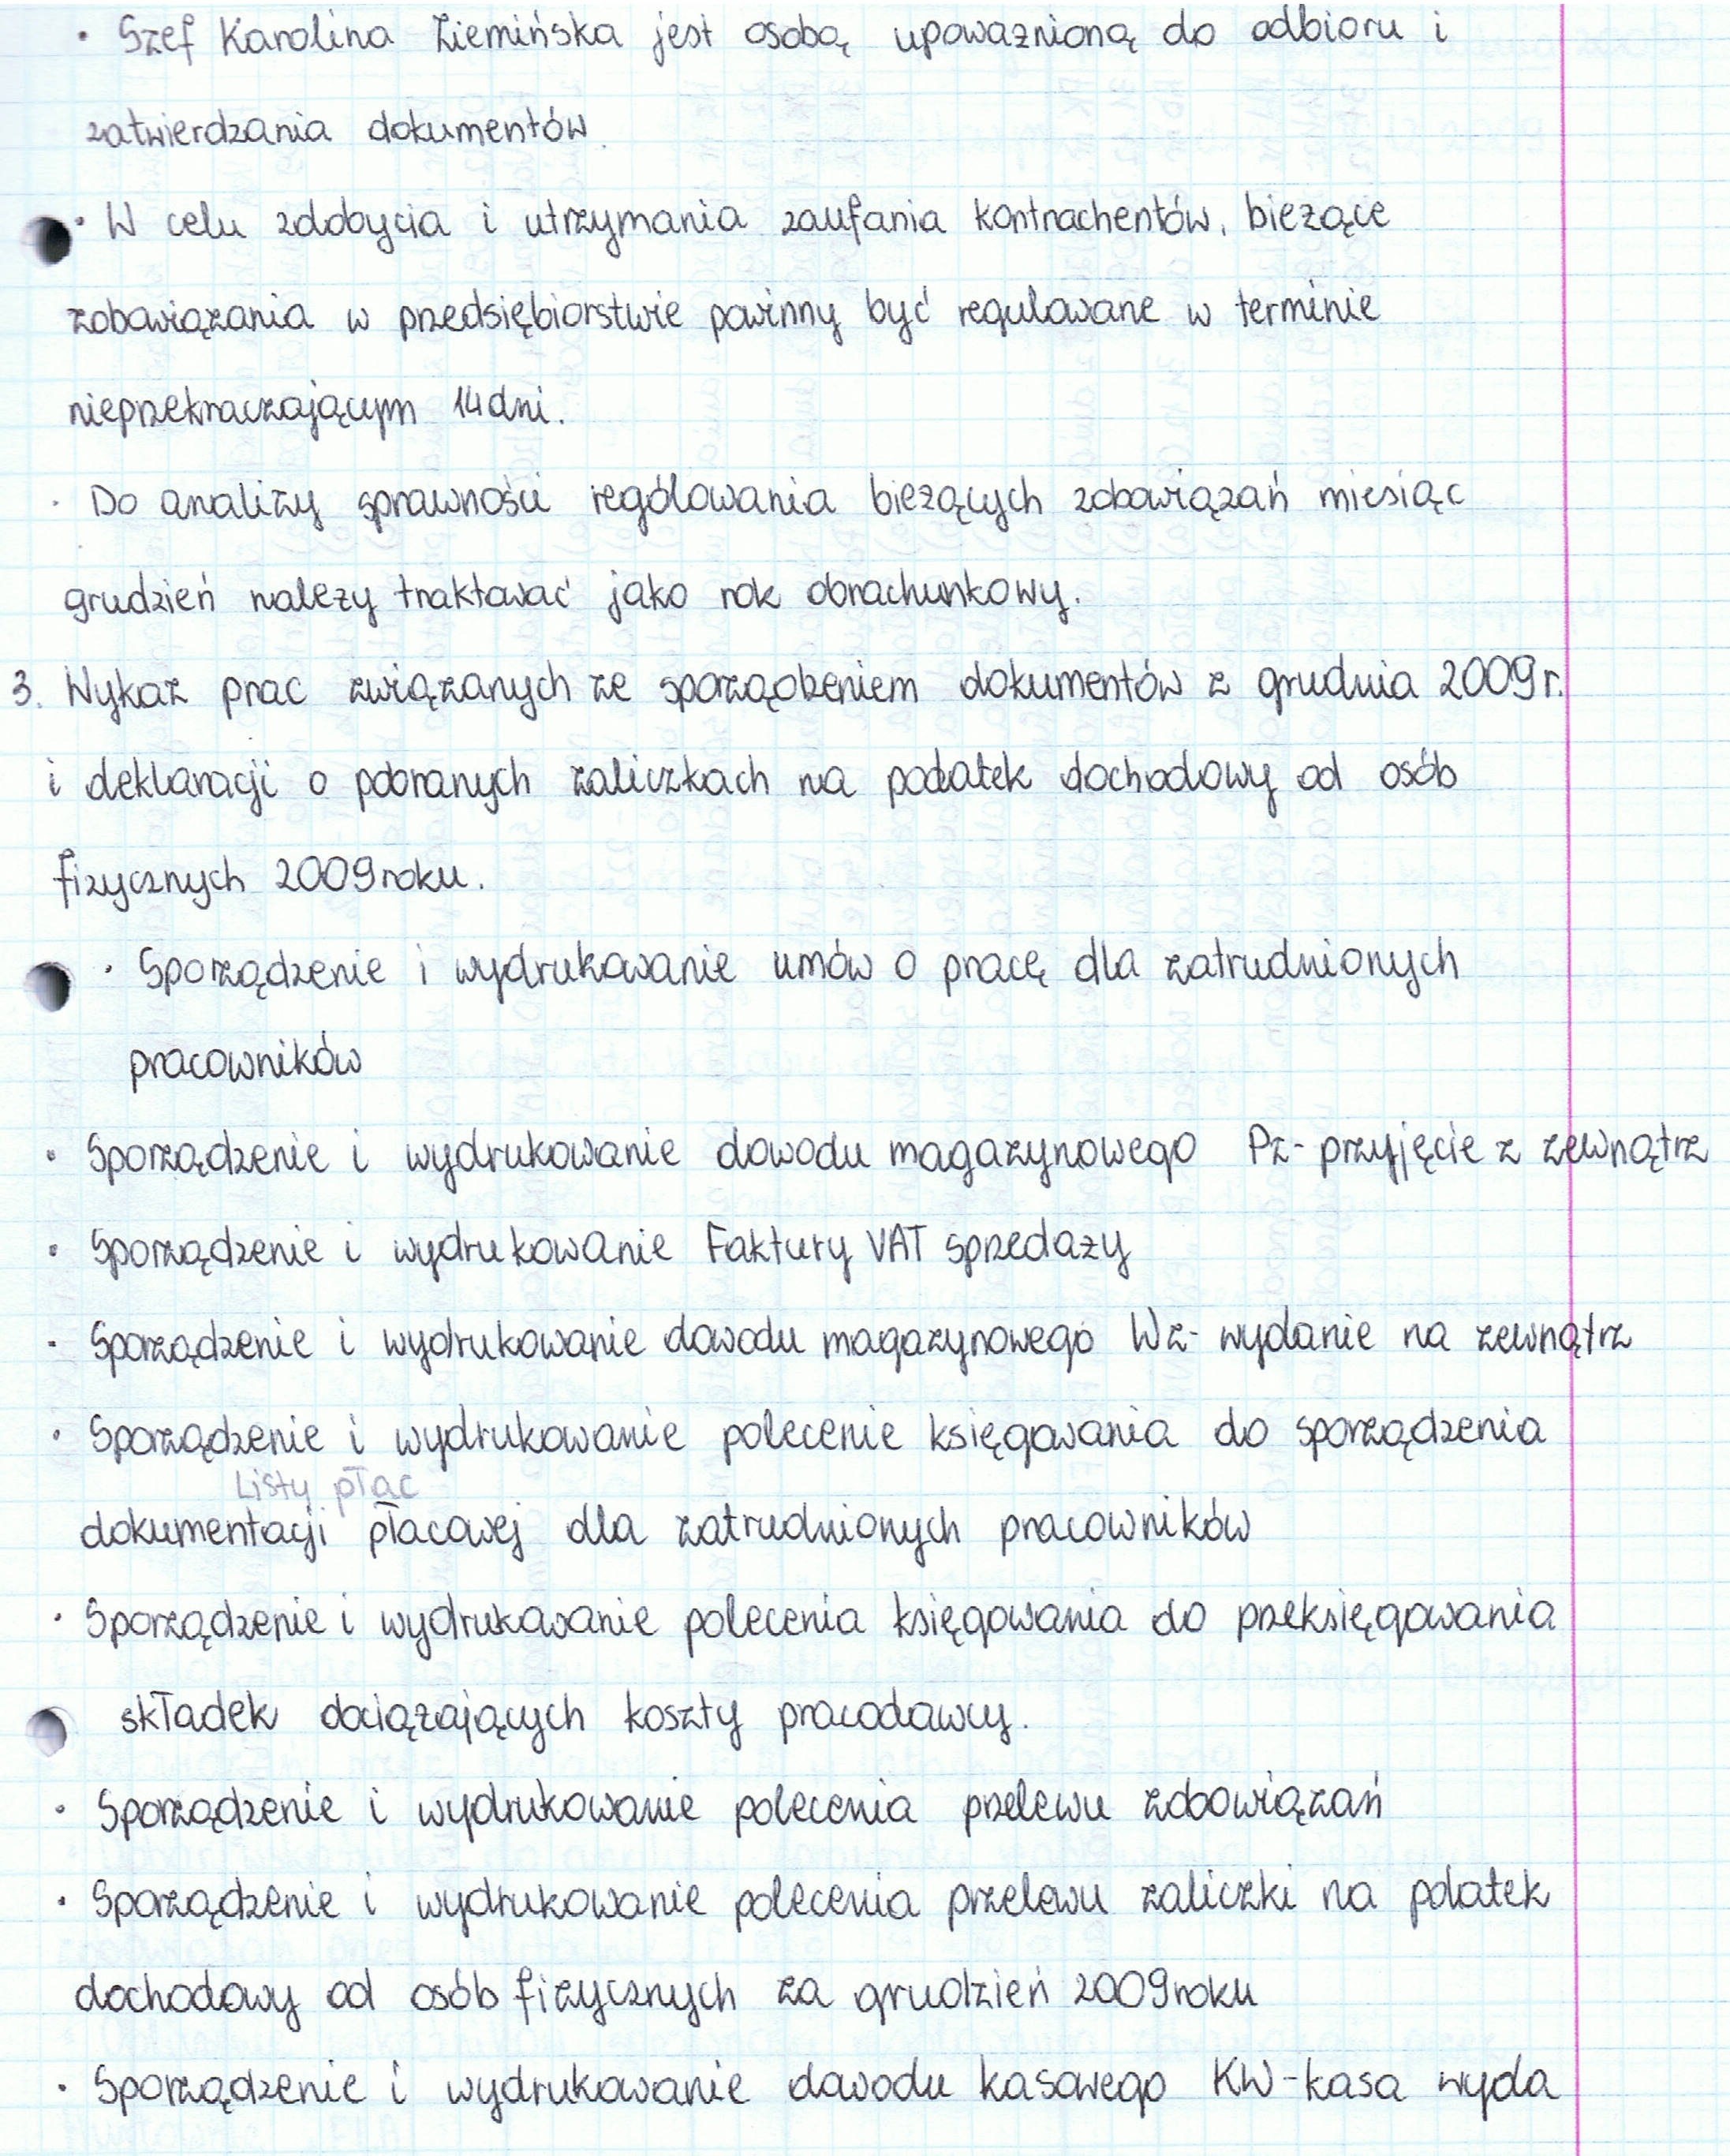 • Szef Karolina Ziemińska jest osobą upoważnioną do odbioru i
zatwierdzania dokumentów.
• W celu zdobycia i utrzymania zaufania kontrachentów, bieżące
zobowiązania w przedsiębiorstwie powinny być regulowane w terminie
nieprzekraczającym 14 dni.
• Do analizy sprawności rególowania bieżących zobowiązań miesiąc
grudzień należy traktować jako rok obrachunkowy.
3. Wykaz prac związanych ze sporządzeniem dokumentów z grudnia 2009 r.
i deklaracji o pobranych zaliczkach na podatek dochodowy od osób
fizycznych 2009 roku.
• Sporządzenie i wydrukowanie umów o pracę dla zatrudnionych
pracowników
• Sporządzenie i wydrukowanie dowodu magazynowego Pz - przyjęcie z zewnątrz
• Sporządzenie i wydrukowanie Faktury VAT sprzedaży
• Sporządzenie i wydrukowanie dowodu magazynowego Wz - wydanie na zewnątrz
• Sporządzenie i wydrukowanie polecenie księgowania do sporządzenia
Listy płac
dokumentacji płacowej dla zatrudnionych pracowników
• Sporządzenie i wydrukowanie polecenia księgowania do przeksięgowania
składek obciążających koszty pracodawcy.
• Sporządzenie i wydrukowanie polecenia przelewu zobowiązań
• Sporządzenie i wydrukowanie polecenia przelewu zaliczki na podatek
dochodowy od osób fizycznych za grudzień 2009 roku
• Sporządzenie i wydrukowanie dowodu kasowego KW - kasa wyda